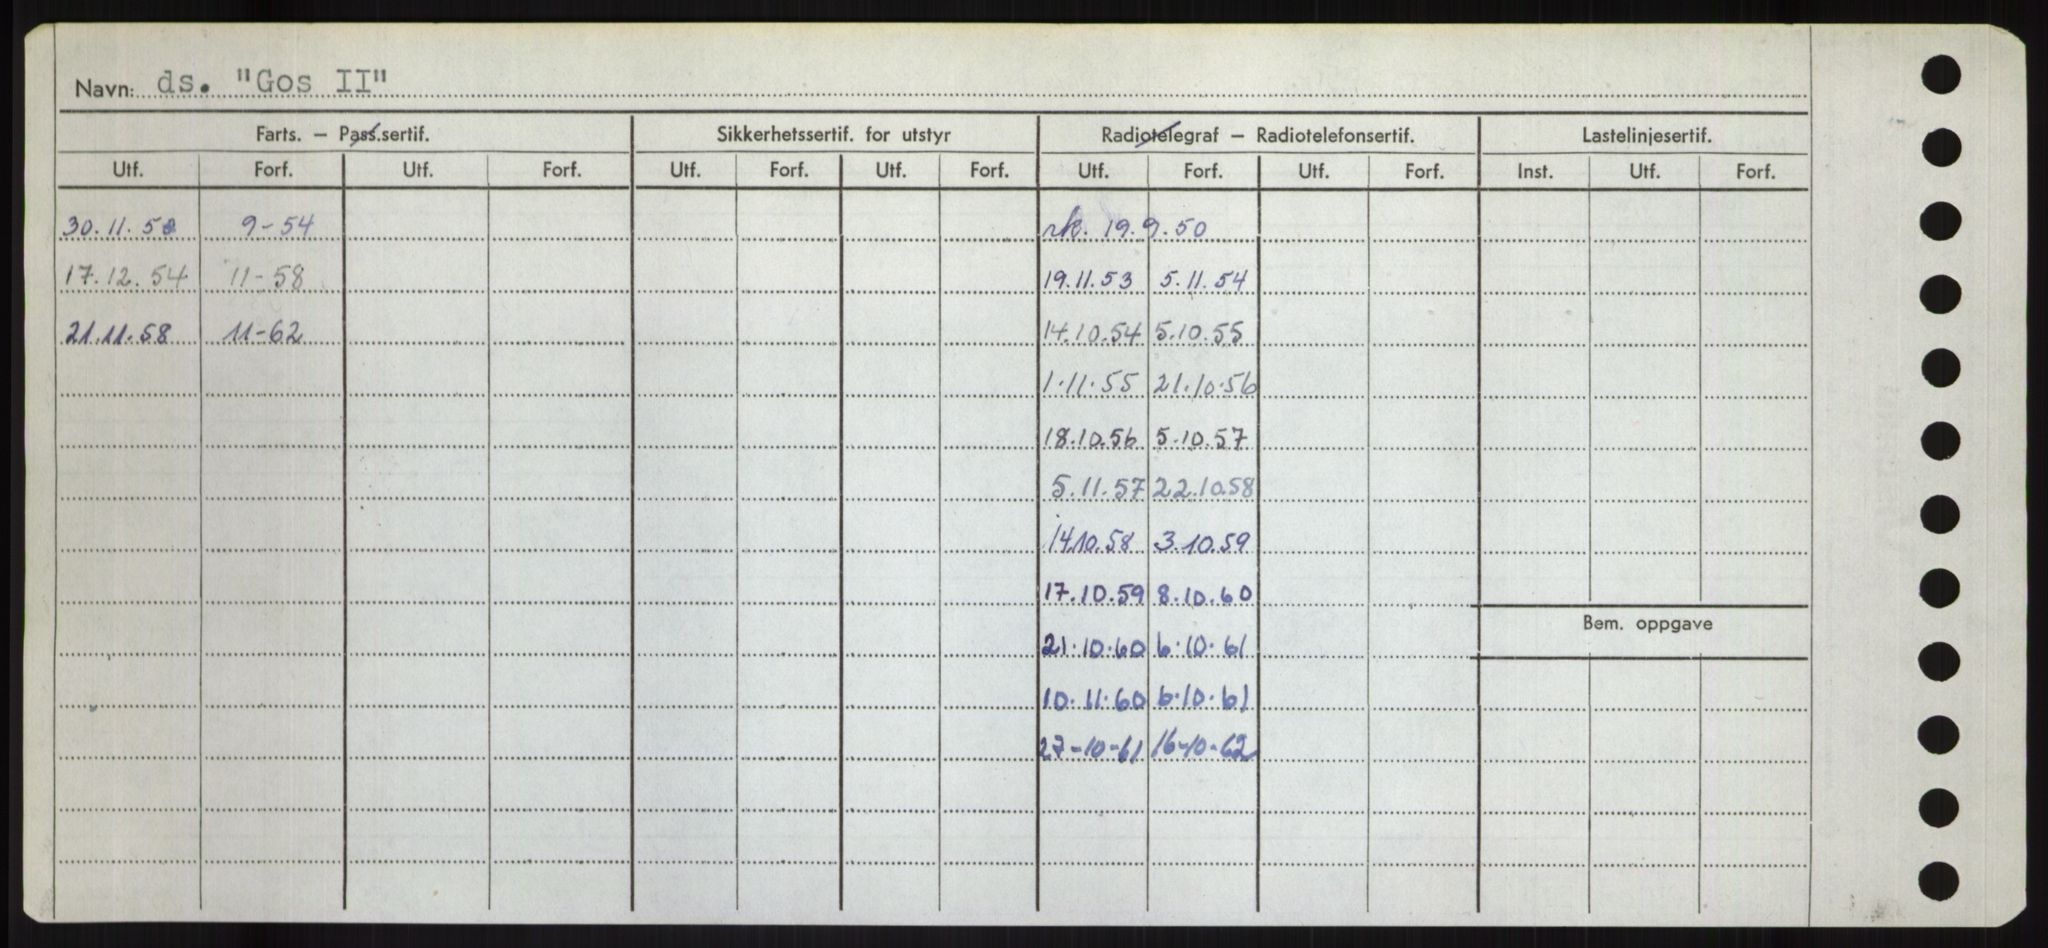 Navn: ds. "Gos II"
Farts. – Pass.sertif. Sikkerhetssertif. for utstyr Radiotelegraf – Radiotelefonsertif. Lastelinjesertif.
Utf. Forf. Utf. Forf. Utf. Forf. Utf. Forf. Utf. Forf. Utf. Forf. Inst. Utf. Forf.
30.11.50 9-54 rk. 19.9.50
17.12.54 11-58 19.11.53 5.11.54
21.11.58 11-62 14.10.54 5.10.55
1.11.55 21.10.56
18.10.56 5.10.57
5.11.57 22.10.58
14.10.58 3.10.59
17.10.59 8.10.60
Bem. oppgave
21.10.60 6.10.61
10.11.60 6.10.61
27-10-61 16-10-62